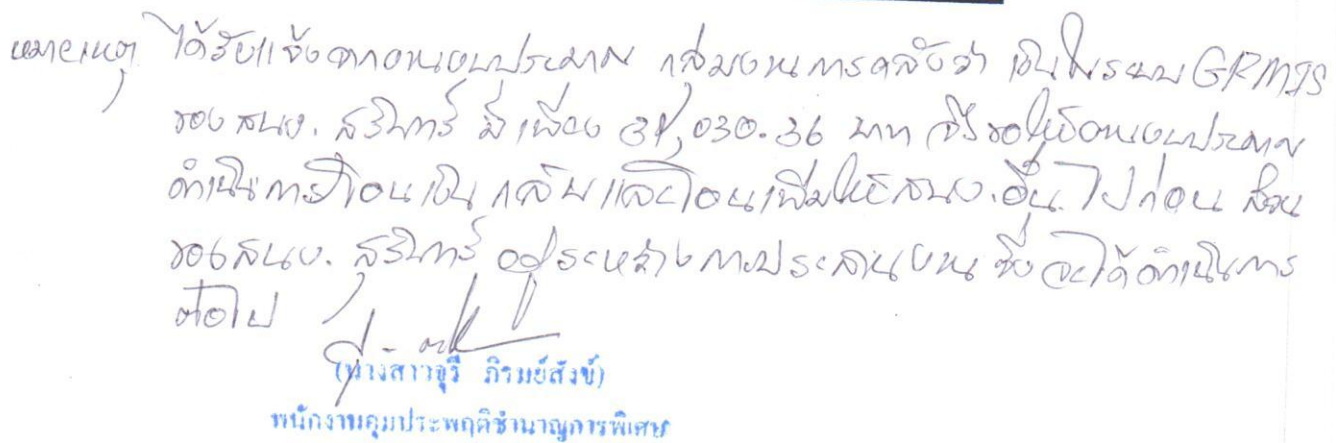 หมายเหตุ ได้รับแจ้งจากงานงบประมาณ กลุ่มงานการคลังว่า เงินในระบบ GFMIS
ของ สนง. สุรินทร์ มีเพียง 31,030.36 บาท จึงขอให้งานงบประมาณ
ดำเนินการโอนเงินกลับและโอนเพิ่มให้ สนง.อื่น ไปก่อน ส่วน
ของ สนง. สุรินทร์ อยู่ระหว่างการประสานงาน ซึ่งจะได้ดำเนินการ
ต่อไป
(นางสาวจุรี ภิรมย์สังข์)
พนักงานคุมประพฤติชำนาญการพิเศษ